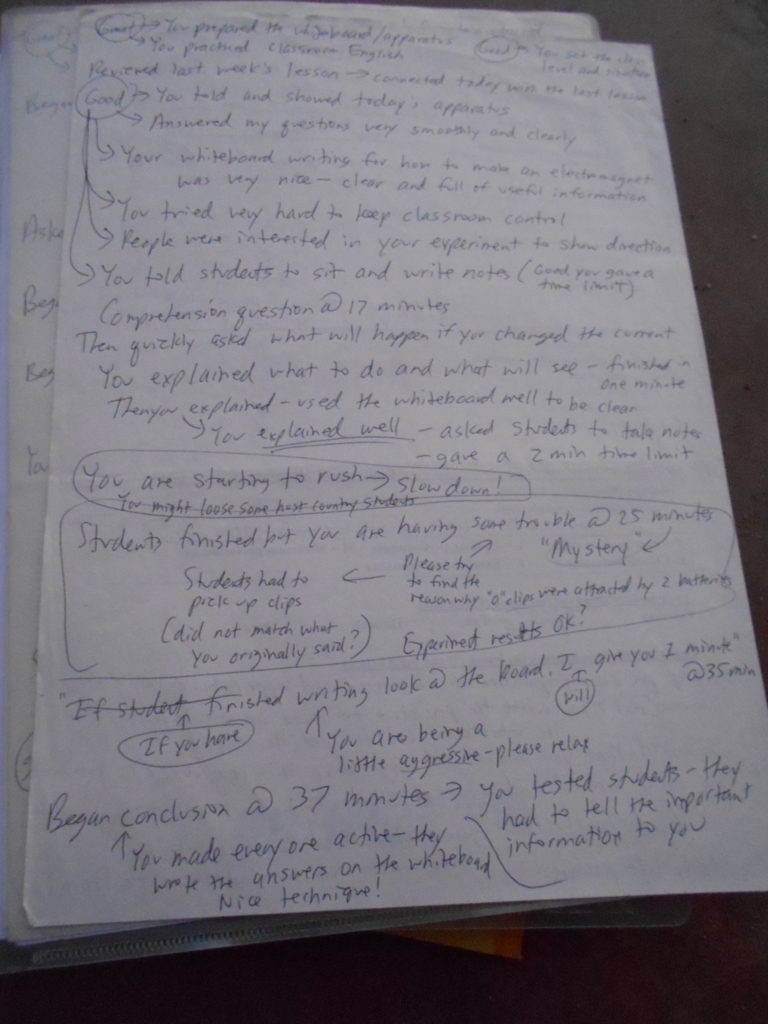 Great → You prepared the whiteboard/apparatus
→ You practiced classroom English
Good → You set the class
level and
Reviewed last week's lesson → connected today with the last lesson
Good → You told and showed today's apparatus
→ Answered my questions very smoothly and clearly
→ Your whiteboard writing for how to make an electromagnet
was very nice - clear and full of useful information
→ You tried very hard to keep classroom control
→ People were interested in your experiment to show direction
→ You told students to sit and write notes (Good you gave a
time limit)
Comprehension question @ 17 minutes
Then quickly asked what will happen if you changed the current
You explained what to do and what will see - finished in
one minute
Then you explained - used the whiteboard well to be clear
→ You explained well - asked students to take notes
- gave a 2 min time limit
You are starting to rush → Slow down!
You might loose some host country students
Students finished but you are having some trouble @ 25 minutes
"Mystery"
Students had to
pick up clips
(did not match what
you originally said?)
← Please try
to find the
reason why "0" clips were attracted by 2 batteries
Experiment results OK?
"If student finished writing look @ the board. I give you 1 minute"
@35min
will
If you have
You are being a
little aggressive - please relax
Began conclusion @ 37 minutes → You tested students - they
had to tell the important
information to you
You made everyone active - they
wrote the answers on the whiteboard
Nice technique!
Great
Began
Aske
Beg
Beg
You